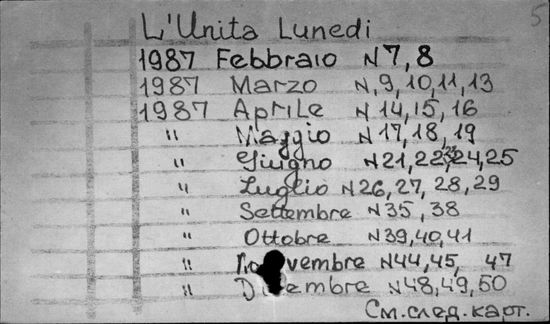 5
L'Unita Lunedi
1987 Febbraio N 7, 8
1987 Marzo N, 9, 10, 11, 13
1987 Aprile N 14, 15, 16
" Maggio N 17, 18, 19
" Giugno N 21, 22, 23, 24, 25
" Luglio N 26, 27, 28, 29
" Settembre N 35, 38
" Ottobre N 39, 40, 41
" Novembre N 44, 45, 47
" Dicembre N 48, 49, 50
См. след. карт.